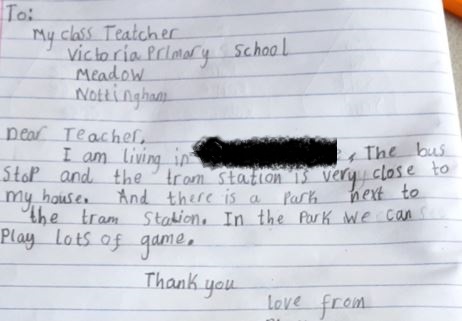 To:
My class Teatcher
Victoria Primary School
Meadow
Nottingham
Dear Teacher,
I am living in , The bus
stop and the tram station is very close to
my house. And there is a Park next to
the tram station. In the Park we can
Play lots of game.
Thank you
love from